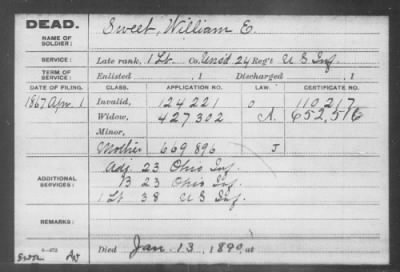 DEAD. Sweet, William E.
NAME OF SOLDIER:
SERVICE: Late rank, 1 Lt. Co. Unas'd 24 Reg't U S Inf.
TERM OF SERVICE: Enlisted , 1 Discharged , 1
DATE OF FILING. CLASS. APPLICATION NO. LAW. CERTIFICATE NO.
1867 Apr. 1 Invalid, 124221 O 110,217
Widow, 427302 A. 652,516
Minor,
Mother 669896 J
ADDITIONAL SERVICES:
Adj. 23 Ohio Inf.
B 23 Ohio Inf.
1 Lt 38 U S Inf.
REMARKS:
Died Jan. 13, 1890, at